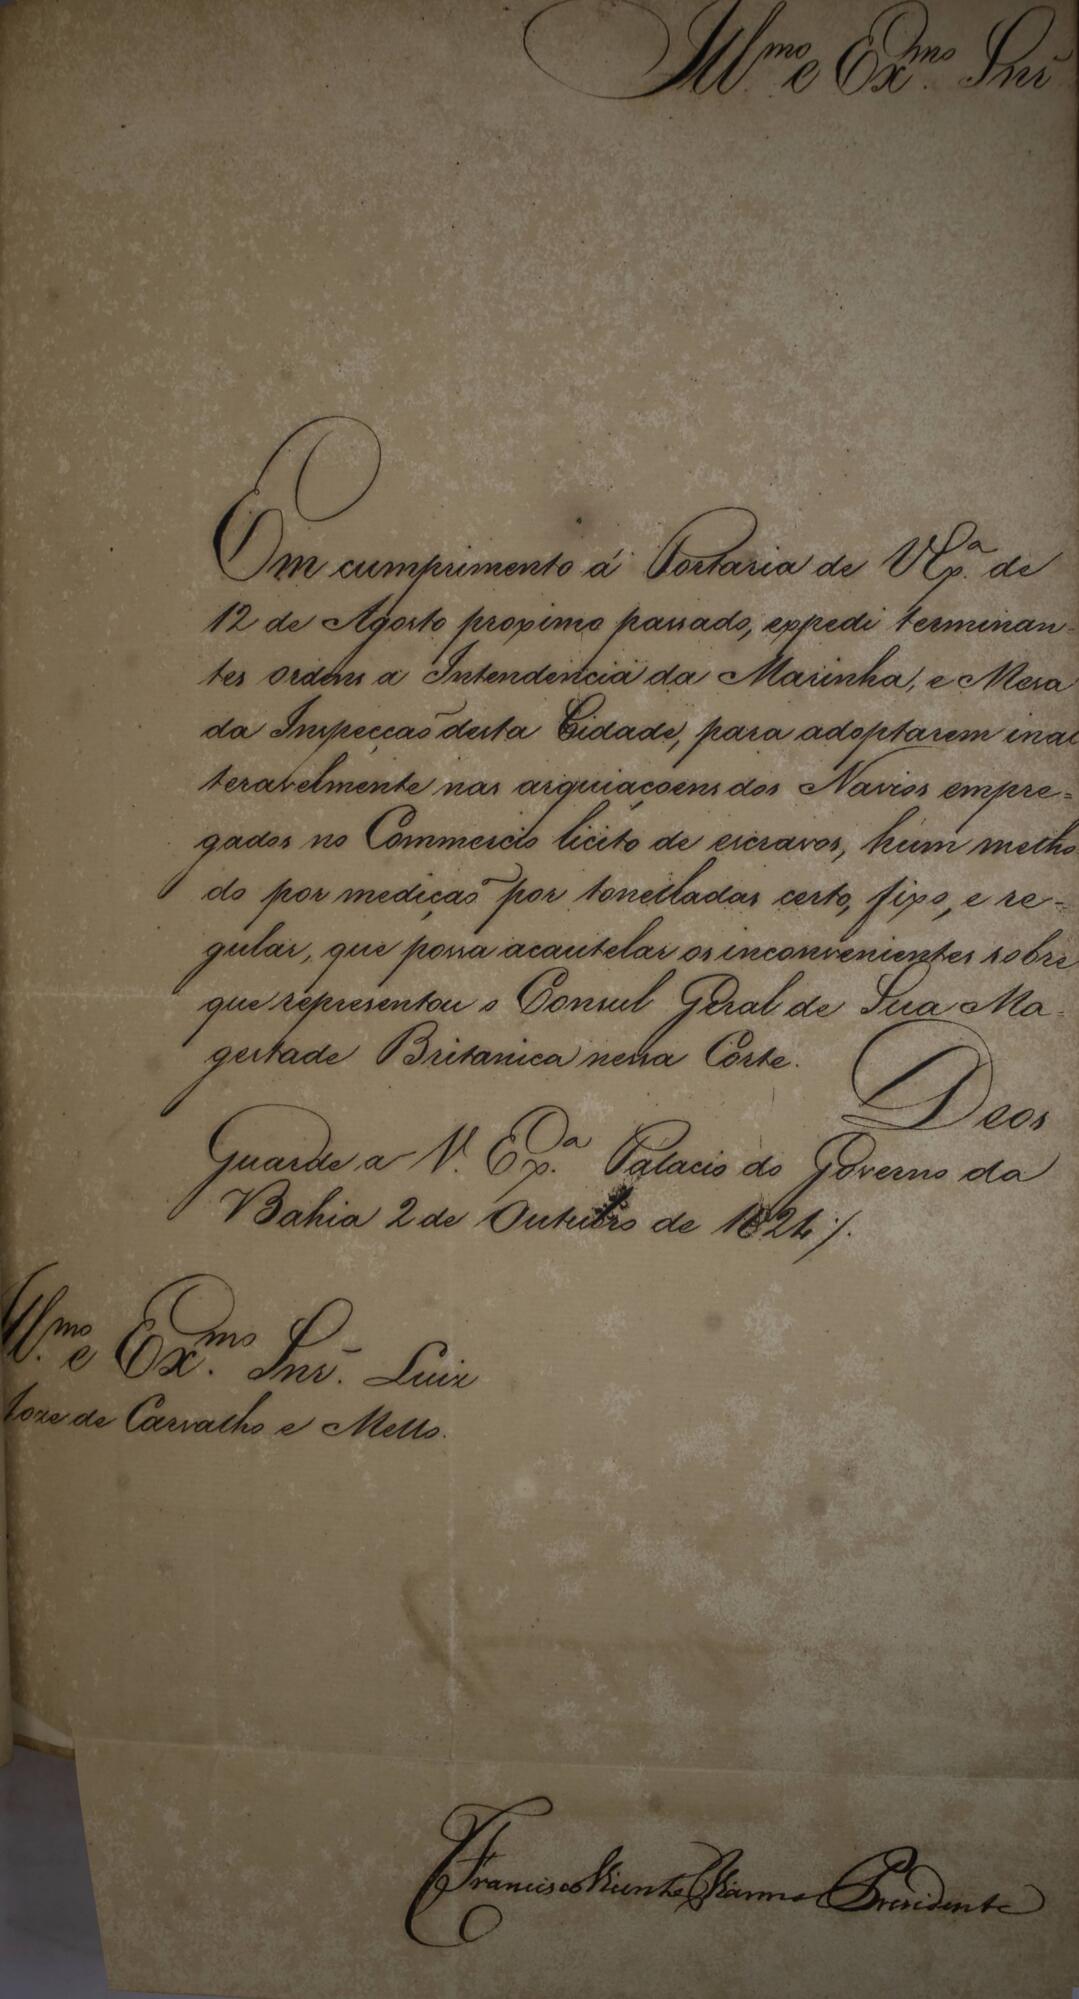 Ill.mo e Ex.mo Snr
Em cumprimento á Portaria de V Ex.a de
12 de Agosto proximo passado, expedi terminan-
tes ordens a Intendencia da Marinha, e Mesa
da Inspecçaõ desta Cidade, para adoptarem inal
teravelmente nas arquiaçoens dos Navios empre=
gados no Commercio licito de escravos, hum metho
do por mediçaõ por tonelladas certo, fixo, e re-
gular, que possa acautelar os inconvenientes sobre
que representou o Consul Geral de Sua Ma-
gestade Britanica nessa Corte. Deos
Guarde a V. Ex.a Palacio do Governo da
Bahia 2 de Outubro de 1824 /.
Ill.mo e Ex.mo Snr. Luiz
Joze de Carvalho e Mello.
Francisco Vicente Vianna Presidente